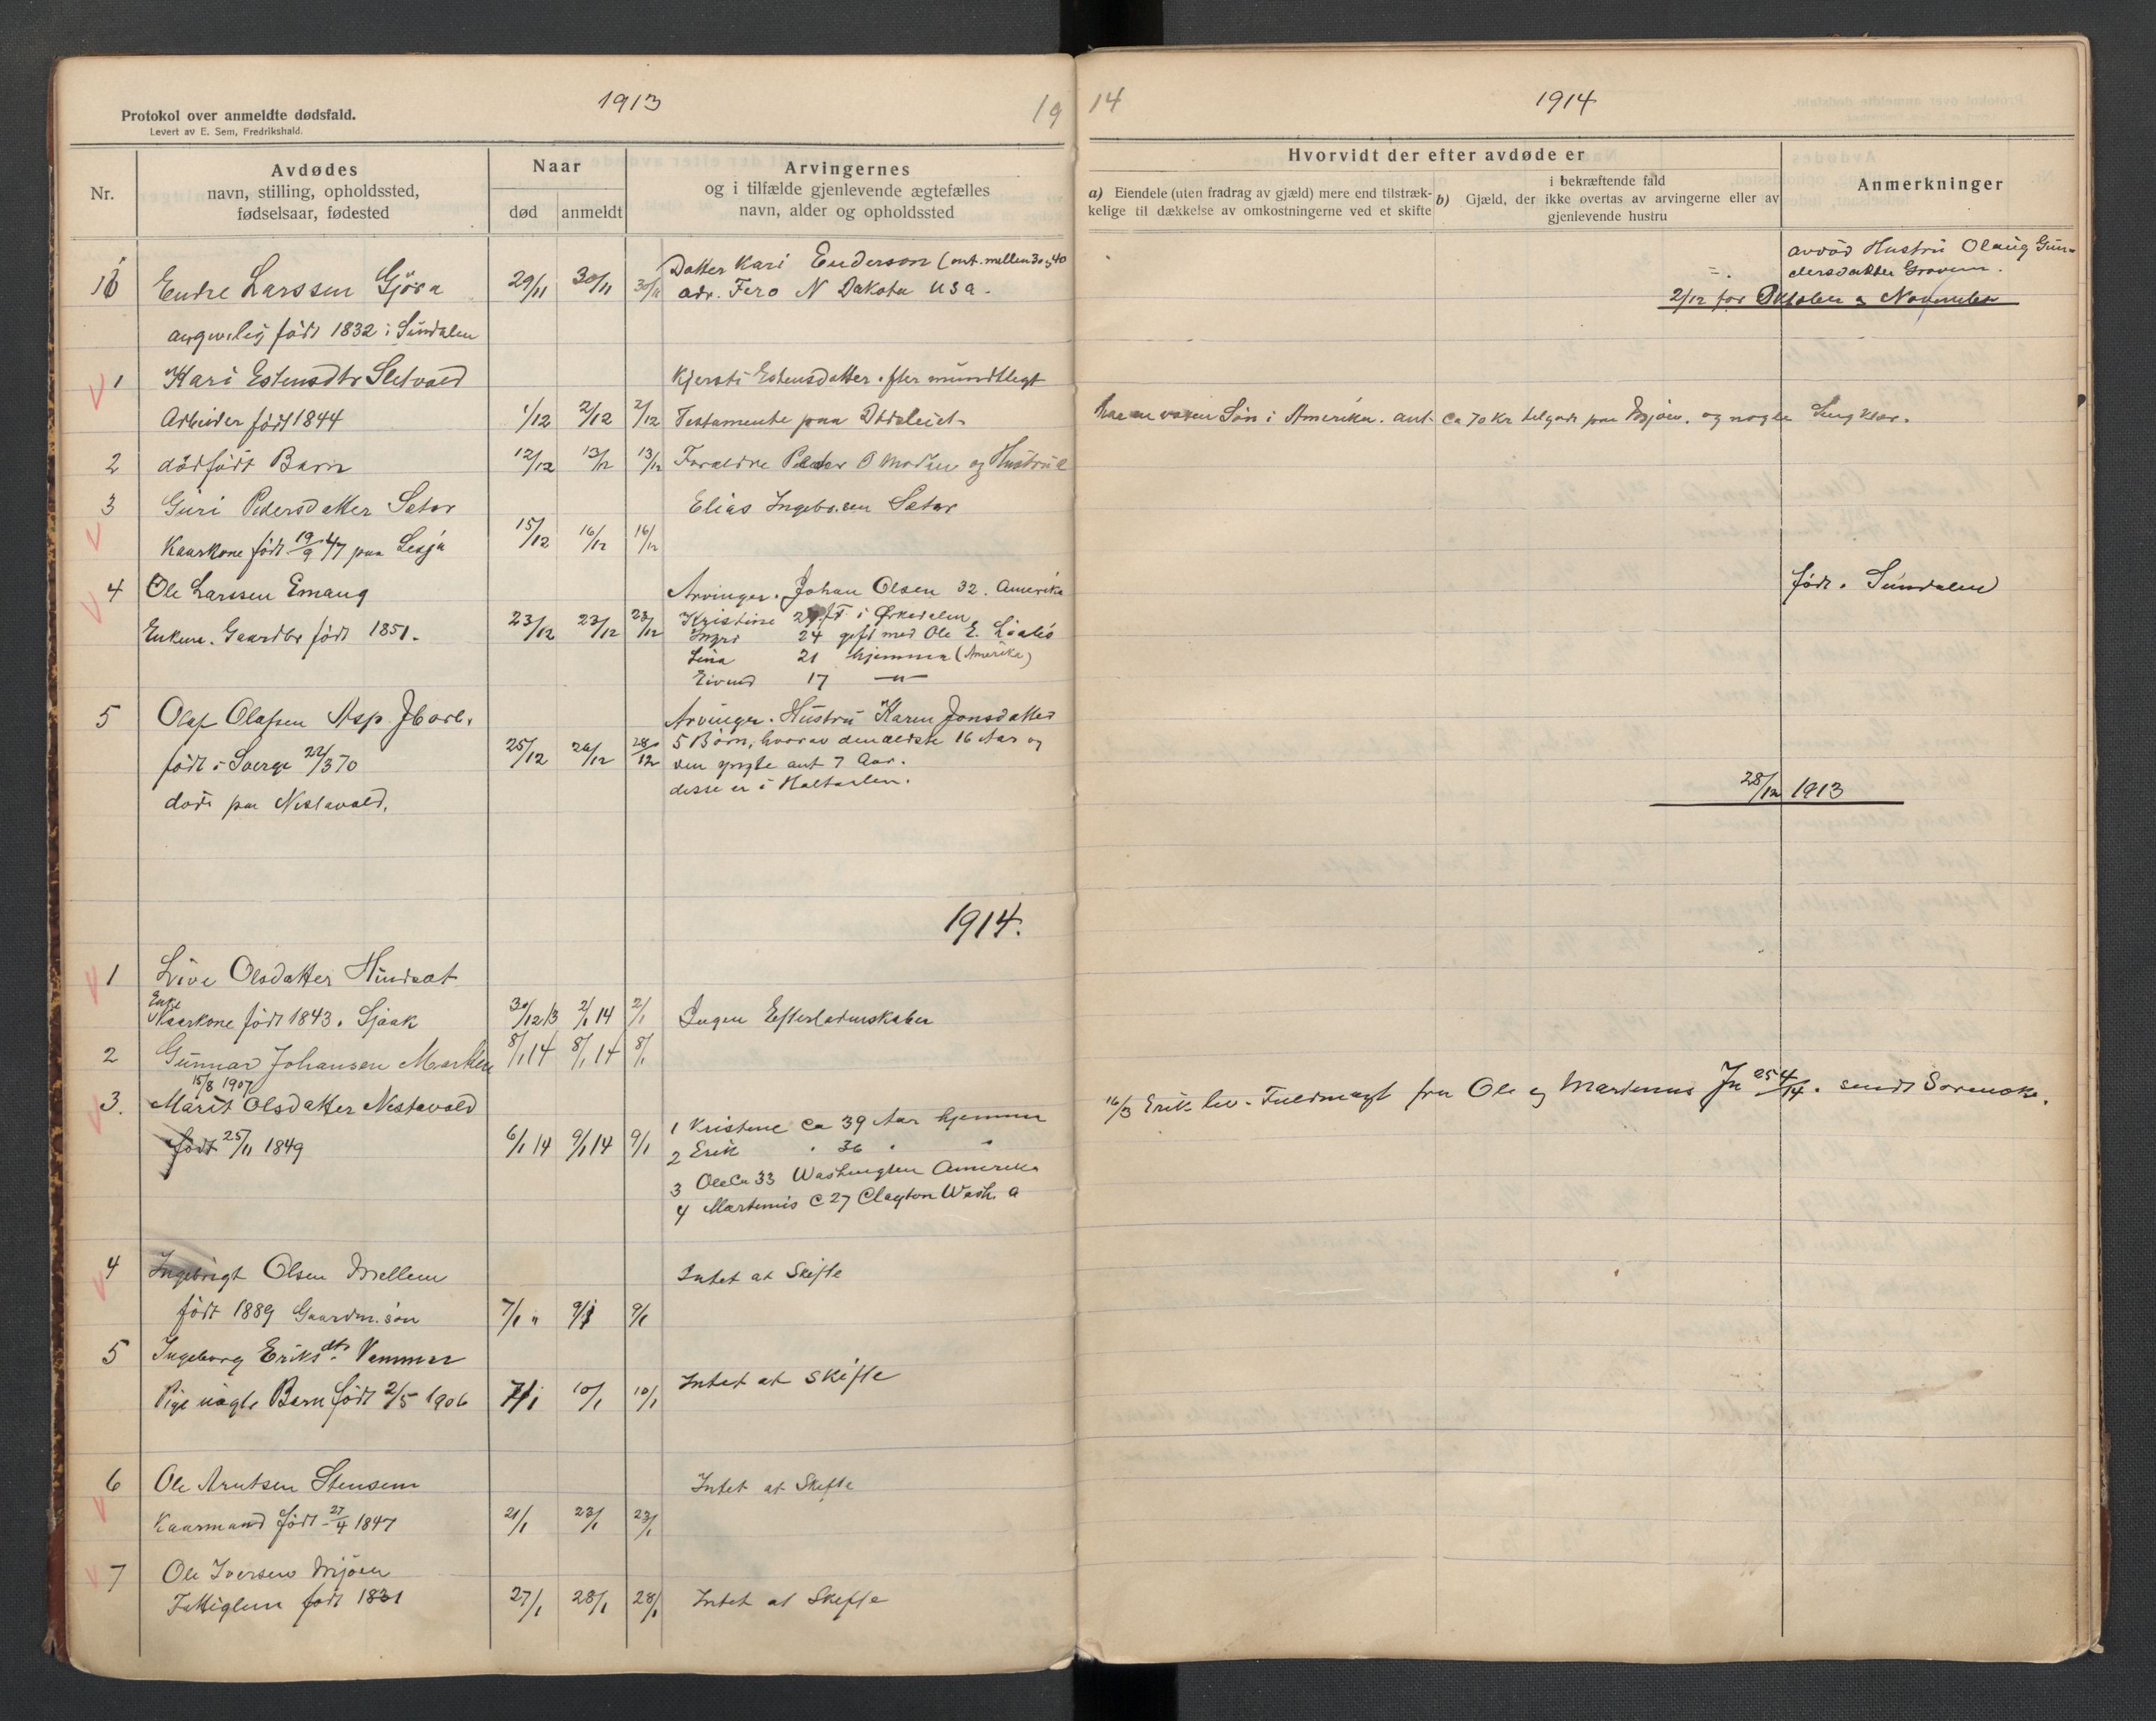 1913
19
Protokol over anmeldte dødsfald.
Levert av E. Sem, Fredrikshald.
Nr.
Avdødes
navn, stilling, opholdssted,
fødselsaar, fødested
Naar
død
anmeldt
Arvingernes
og i tilfælde gjenlevende ægtefælles
navn, alder og opholdssted
Endre Larssen Gjöra 29/11 30/11 30/11
Datter Kari Enderson (ant. mellem 30 og 40
adr. Fero N Dakota USA.
angivelig født 1832 i Sundalen
1 Kari Estensdtr Sletvold
Kjersti Estensdatter efter mundtlegt
Arbeider født 1844 1/12 2/12 2/12 Testamente paa Dødsleiet
2 dödfödt Barn 12/12 13/12 13/12 Foraldre Peder O Moden og Hustru
3 Guri Pedersdatter Sæter
Elias Ingebr.sen Sæter
Kaarkone født 19/9 47 paa Lesja 15/12 16/12 16/12
4 Ole Larssen Emaug
Arvinger. Johan Olsen 32. Amerika
Enkem. Gaardbr født 1851. 23/12 23/12 23/12
Kristine 29 gft. i Ørkedalen
24 gift med Ole E.
Lina 21 hjemme (Amerika)
Eivind 17 —"—
5 Olaf Olafsen Asp Jb arb.
Arvinger. Hustru Karen Jonsdatter
født i Sverge 22/3 70 25/12 26/12 28/12
5 Börn, hvorav den ældste 16 Aar og
den yngste ant 7 Aar.
disse er i Haltdalen.
död paa Nestavold.
1914.
1 Live Olsdatter Hindset
Enke
Kaarkone født 1843. Sjaak 30/12 13 2/1 14 2/1 Ingen Efterladenskaber
2 Gunnar Johansen 8/1 14 8/1 14 8/1
15/8 1907
3. Marit Olsdatter Nestavold
født 25/11 1849 6/1 14 9/1 14 9/1
1 Kristine Ca 39 Aar hjemme
2 Erik " 36 " "
3 Ole Ca 33 Washington Amerika
4 Martinus C 27 Clayton Wash. a
4 Ingebrigt Olsen Mellem
Intet at Skifte
født 1889 Gaardm. sön 7/1 " 9/1 9/1
5 Ingeborg Eriksdtr. Vammer
Intet at Skifte
Pige uægte Barn født 2/5 1906 7/1 10/1 10/1
6 Ole Arntsen Stensem
Intet at Skifte
Kaarmand født 27/4 1847 21/1 23/1 23/1
7 Ole Iversen Mjöen
Fattiglem født 1831 27/1 28/1 28/1 Intet at Skifte
14
1914
Hvorvidt der efter avdøde er
a) Eiendele (uten fradrag av gjæld) mere end tilstræk-
kelige til dækkelse av omkostningerne ved et skifte
i bekræftende fald
b) Gjæld, der ikke overtas av arvingerne eller av
gjenlevende hustru
Anmerkninger
avdöd Hustru Olaug Gun-
dersdatter Gravem.
2/12 for Oktober og November
har en voksen Sön i Amerika. ant. Ca 70 Kr tilgode paa Mjöen. og nogle Sengklær.
født. Sundalen
28/12 1913
16/3 Erik lev. Fuldmagt fra Ole og Martinus Jn 254/14. sendt Sorensk.